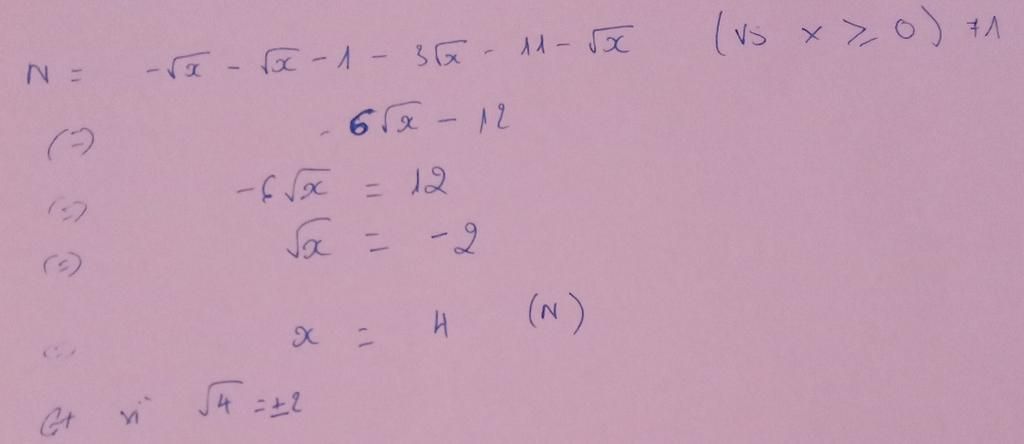 N = -√x - √x - 1 - 3√x - 11 - √x (vs x ≥ 0) ≠1
(=) - 6√x - 12
(=) -6√x = 12
(=) √x = -2
(=) x = 4 (N)
√4 = ±2